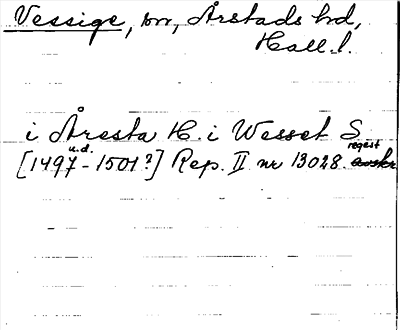 Vessige, sn, Årstads hd,
Hall. l.
i Åresta H. i Wesset S
[1497 u.d. - 1501?] Rep. II nr 13028 regest